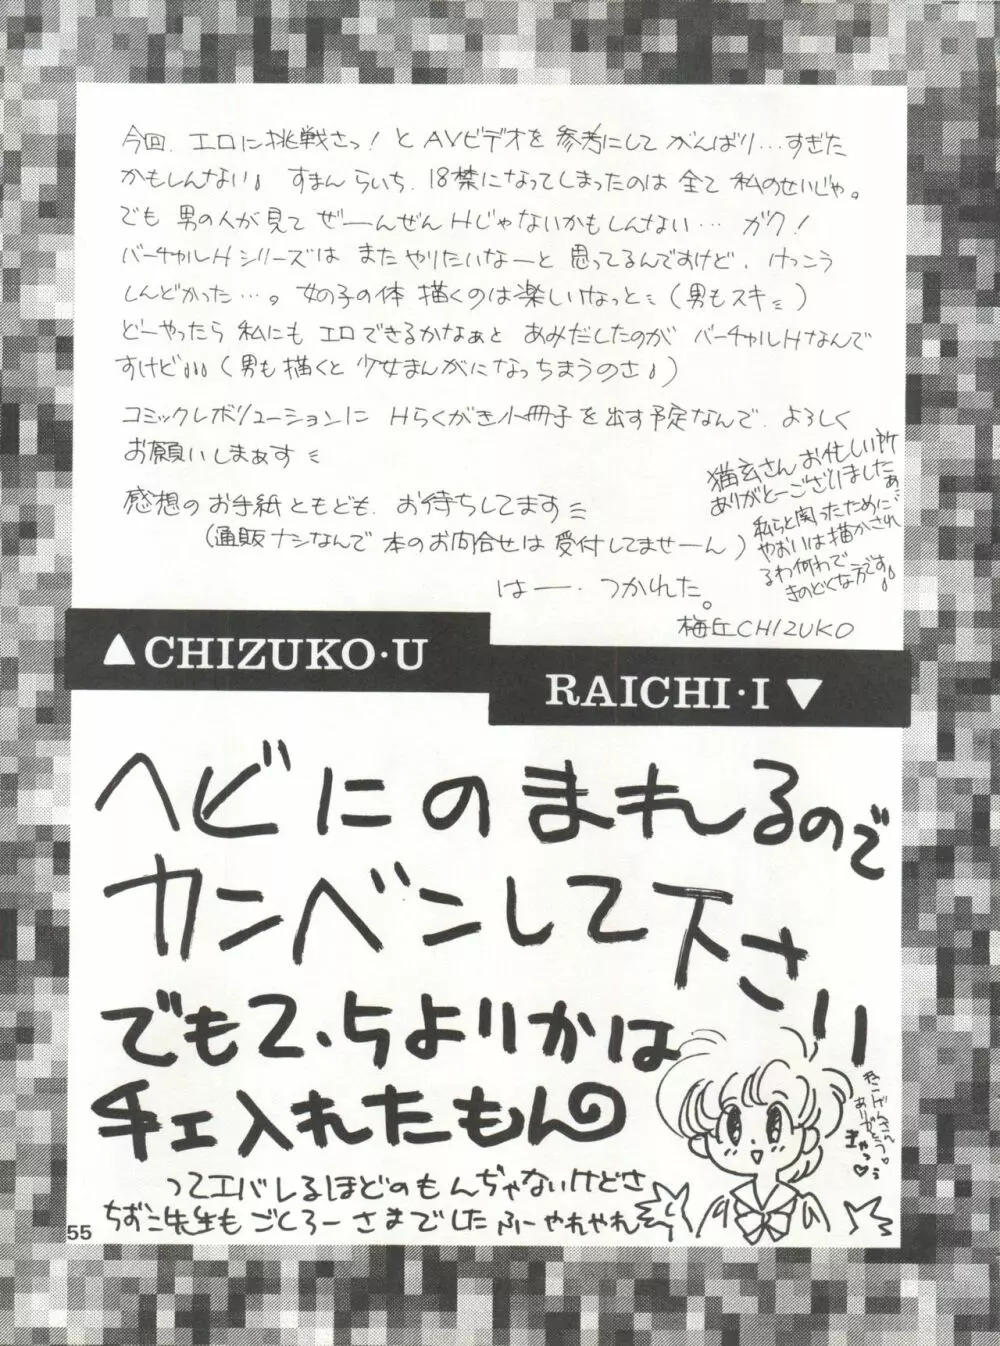 今回、エロに挑戦さっ！とAVビデオを参考にしてがんばり…すぎた
かもしんない♪ すまん らいち、18禁になってしまったのは 全て 私のせいじゃ。
でも 男の人が見て ぜーんぜんHじゃないかもしんない… ガク！
バーチャルHシリーズは またやりたいなーと 思ってるんですけど、けっこう
しんどかった…。女の子の体 描くのは楽しいなっと（男もスキ）
どーやったら 私にも エロできるかなぁと あみだしたのが バーチャルHなんで
すけど♪♪♪（男も描くと 少女まんがになっちまうのさ♪）
コミックレボリューションに Hらくがき小冊子を出す予定なんで、よろしく
お願いしまぁす
感想のお手紙ともども、お待ちしてます
（通販ナシなんで 本のお問合せは 受付してませーん）
はー、つかれた。
猫玄さん お忙しい所
ありがとーございましたぁ
私らと関ったために
やおいは描かされ
るわ何わで
きのどくな方です♪
梅丘CHIZUKO
▲CHIZUKO・U
RAICHI・I▼
ヘビにのまれるので
カンベンして下さい
でも2.5よりかは
チエ入れたもん
ってエバレるほどのもんぢゃないけどさ
ちずこ先生も ごくろーさまでした ふーやれやれ
きゃっ♡
55